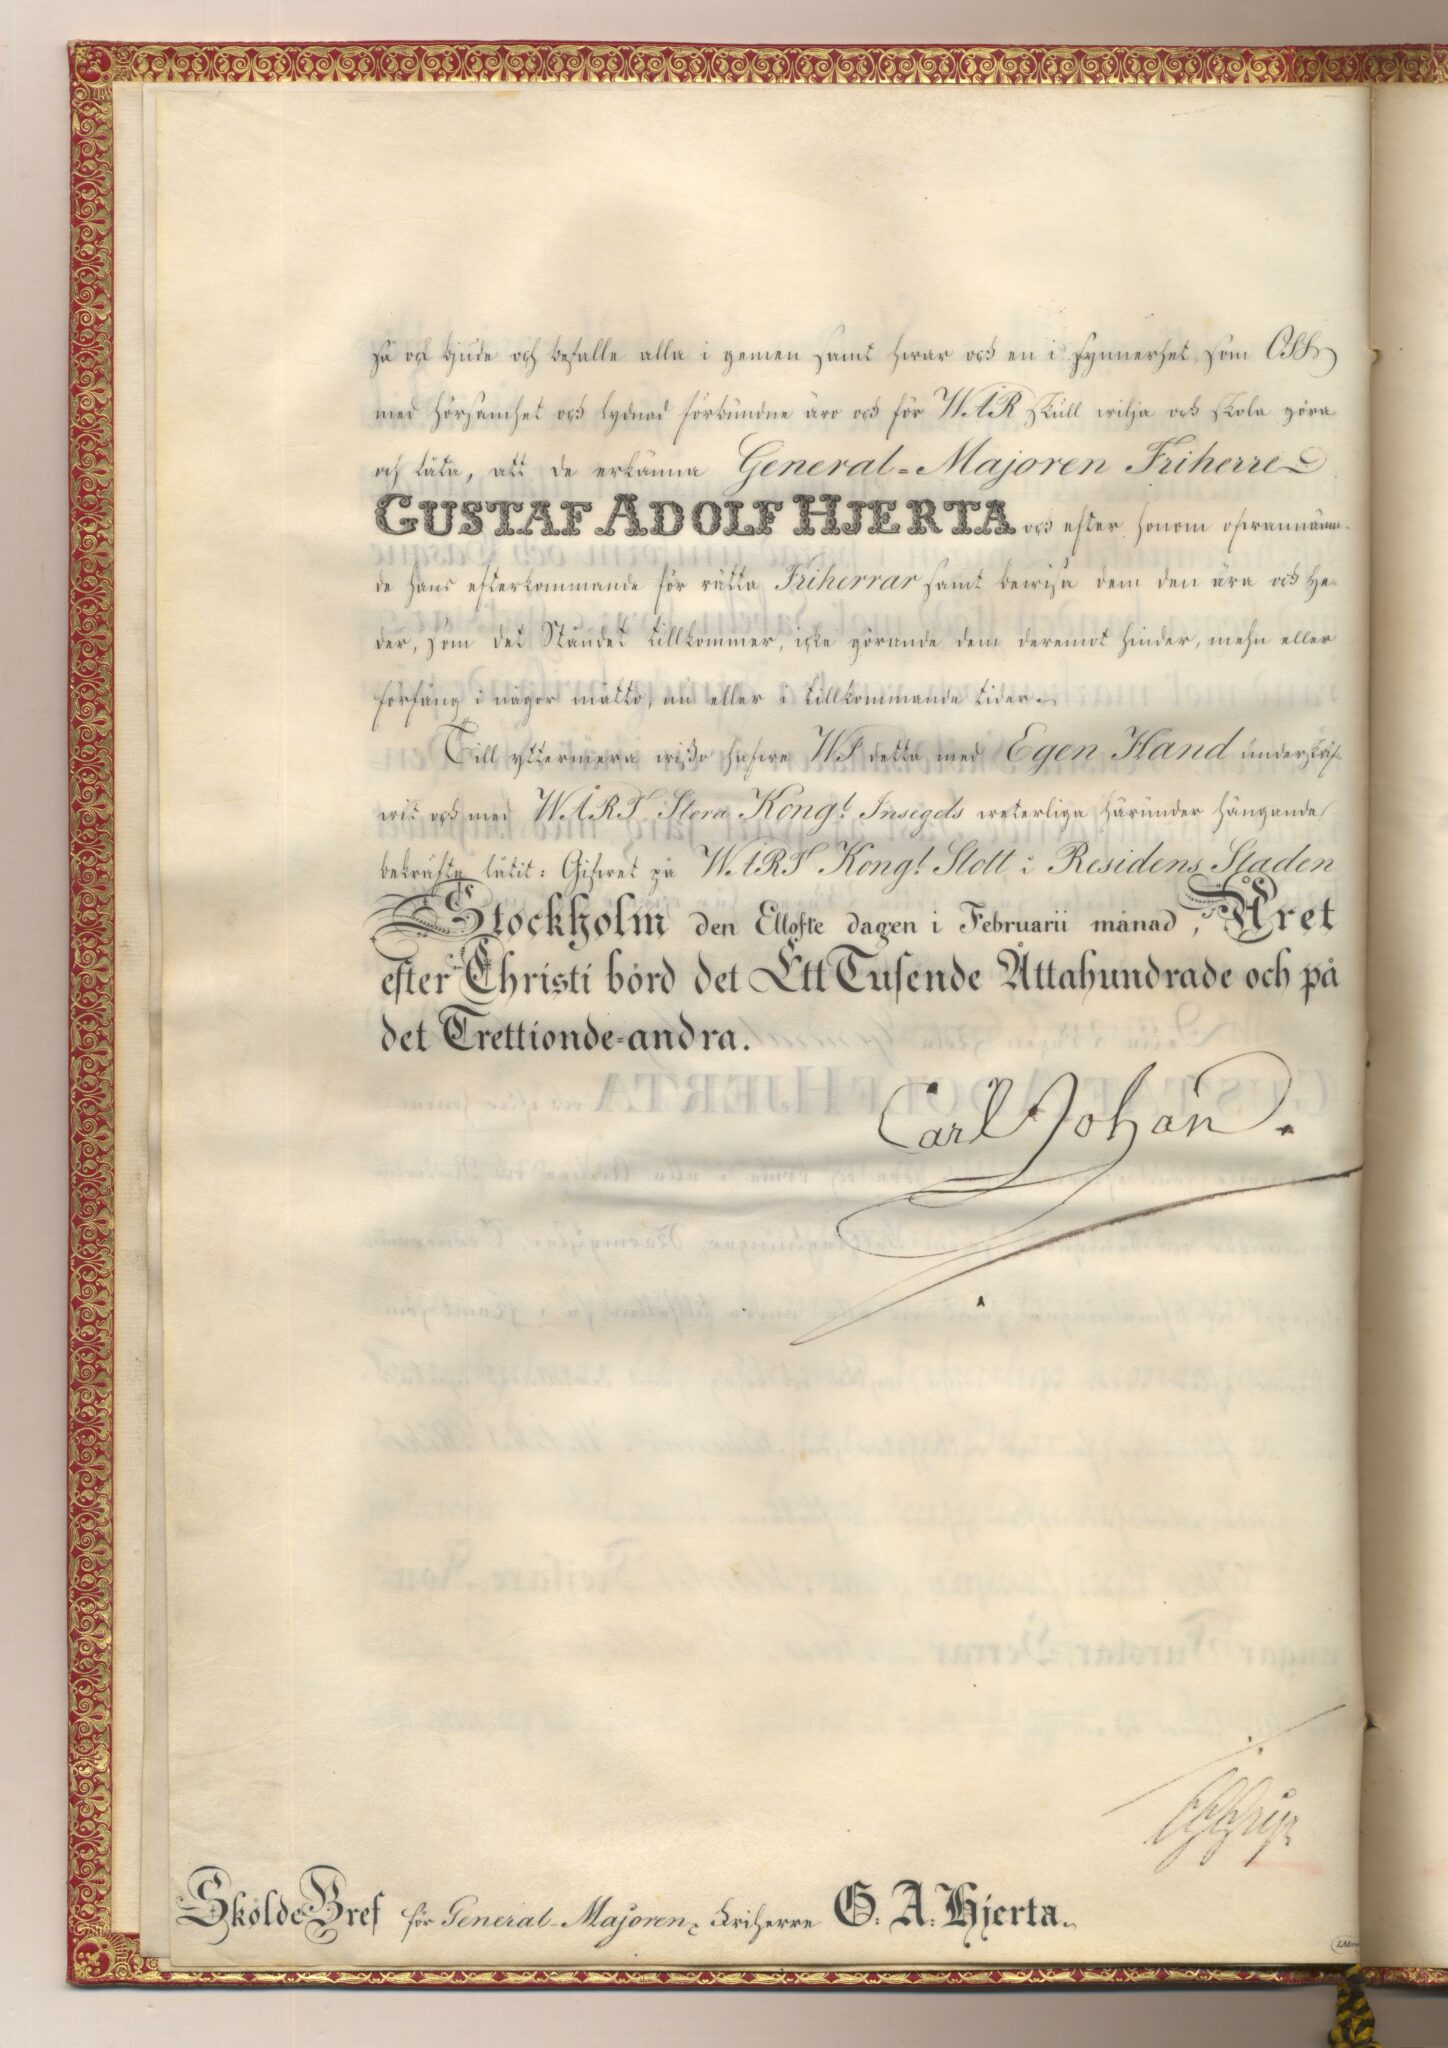 så ock bjude och befalle alla i gemen samt hwar ock en i synnerhet, som OSS
med hörsamhet ock lydnad förbundne äro ock för WÅR skull wilja ock skola göra
och låta, att de erkänna General-Majoren Friherre
GUSTAF ADOLF HJERTA ock efter honom ofwannämn-
de hans efterkommande för rätta Friherrar samt bewisa dem den ära ock he-
der, som det Ståndet tillkommer, icke görande dem deremot hinder, mehn eller
förfång i någor måtto, nu eller i tillkommande tider.
Till yttermera wisso hafwe WI detta med Egen Hand underskrif-
wit ock med WÅRT Stora Kongl. Insegels weterliga härunder hängande
bekräfta låtit: Gifwet på WÅRT Kongl. Slott i Residens Staden
Stockholm den Ellofte dagen i Februarii månad, Året
efter Christi börd det Ett Tusende Åttahundrade och på
det Trettionde-andra.
Carl Johan.
Sköldebref för General-Majoren, Friherre G. A. Hjerta.